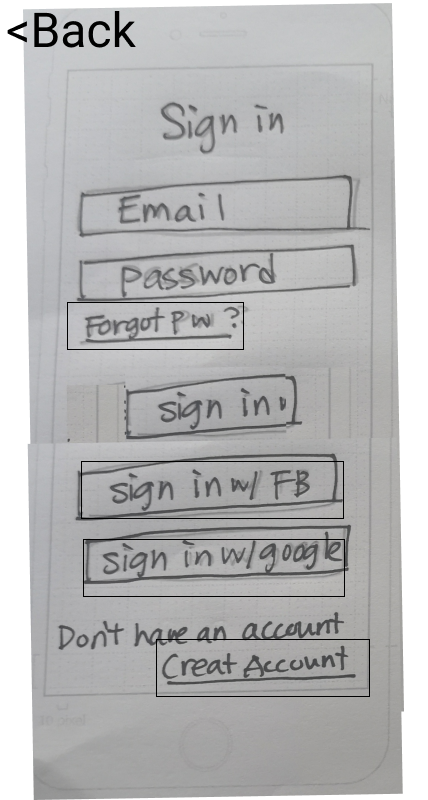 <Back
Sign in
Email
Password
Forgot pw?
sign in
sign in w/ FB
sign in w/google
Don't have an account
Creat Account